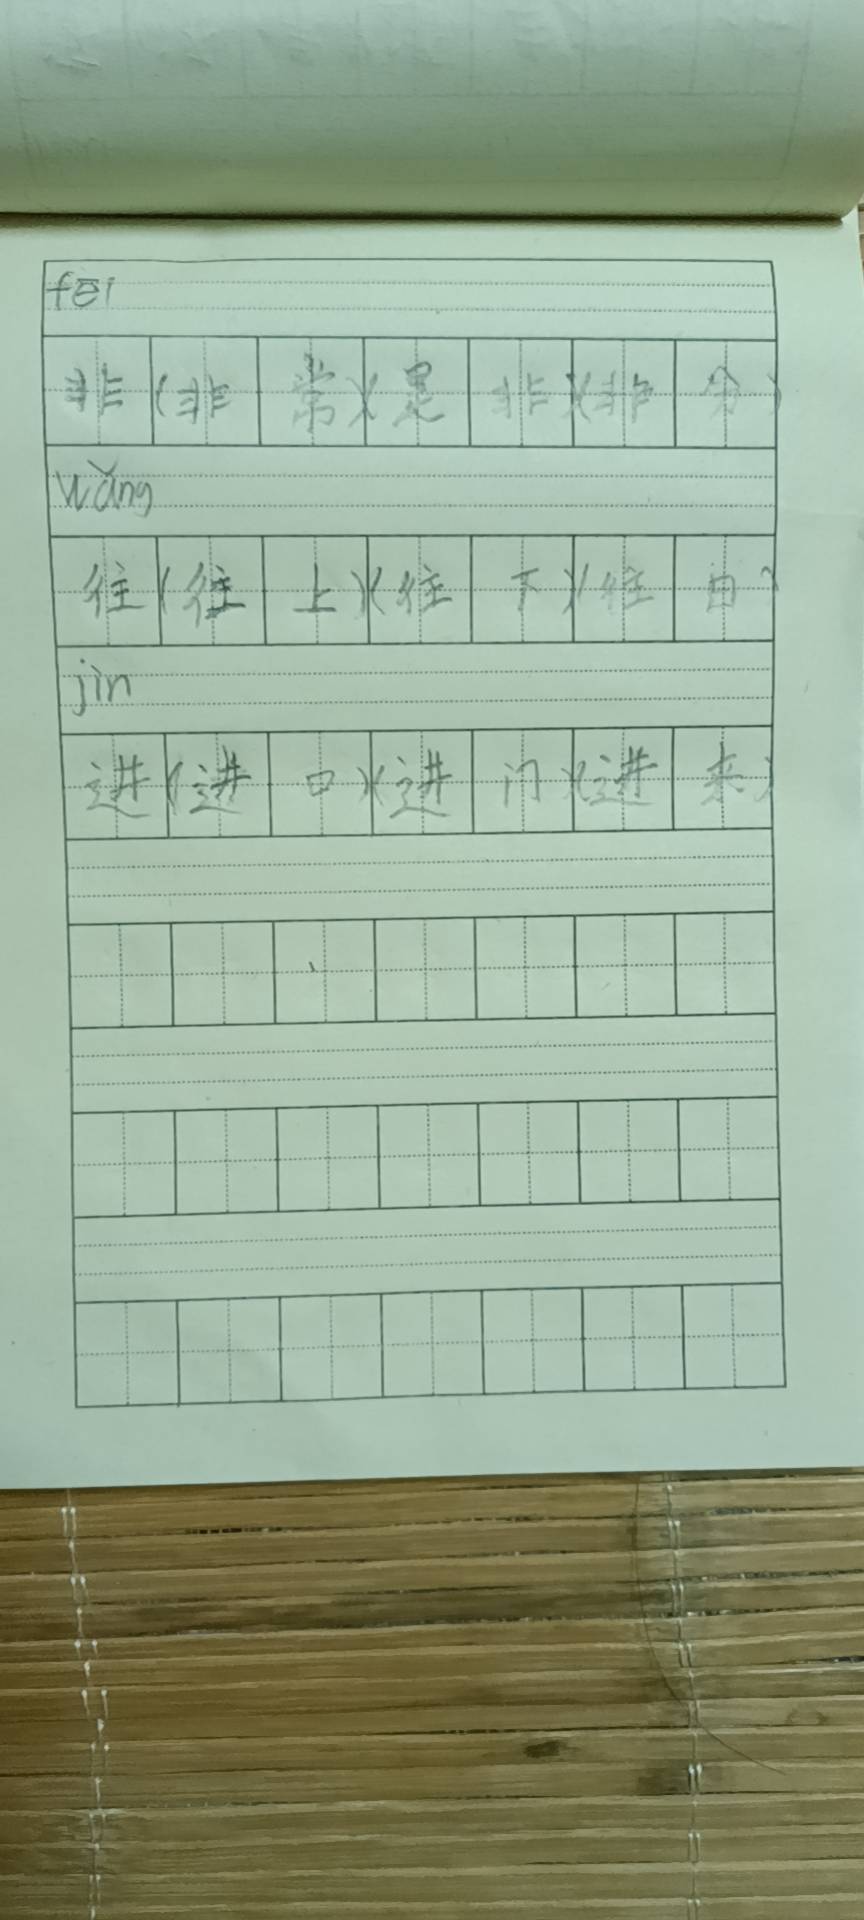 fēi
非(非常)(是非)(非分)
wǎng
往(往上)(往下)(往日)
jìn
进(进口)(进门)(进来)